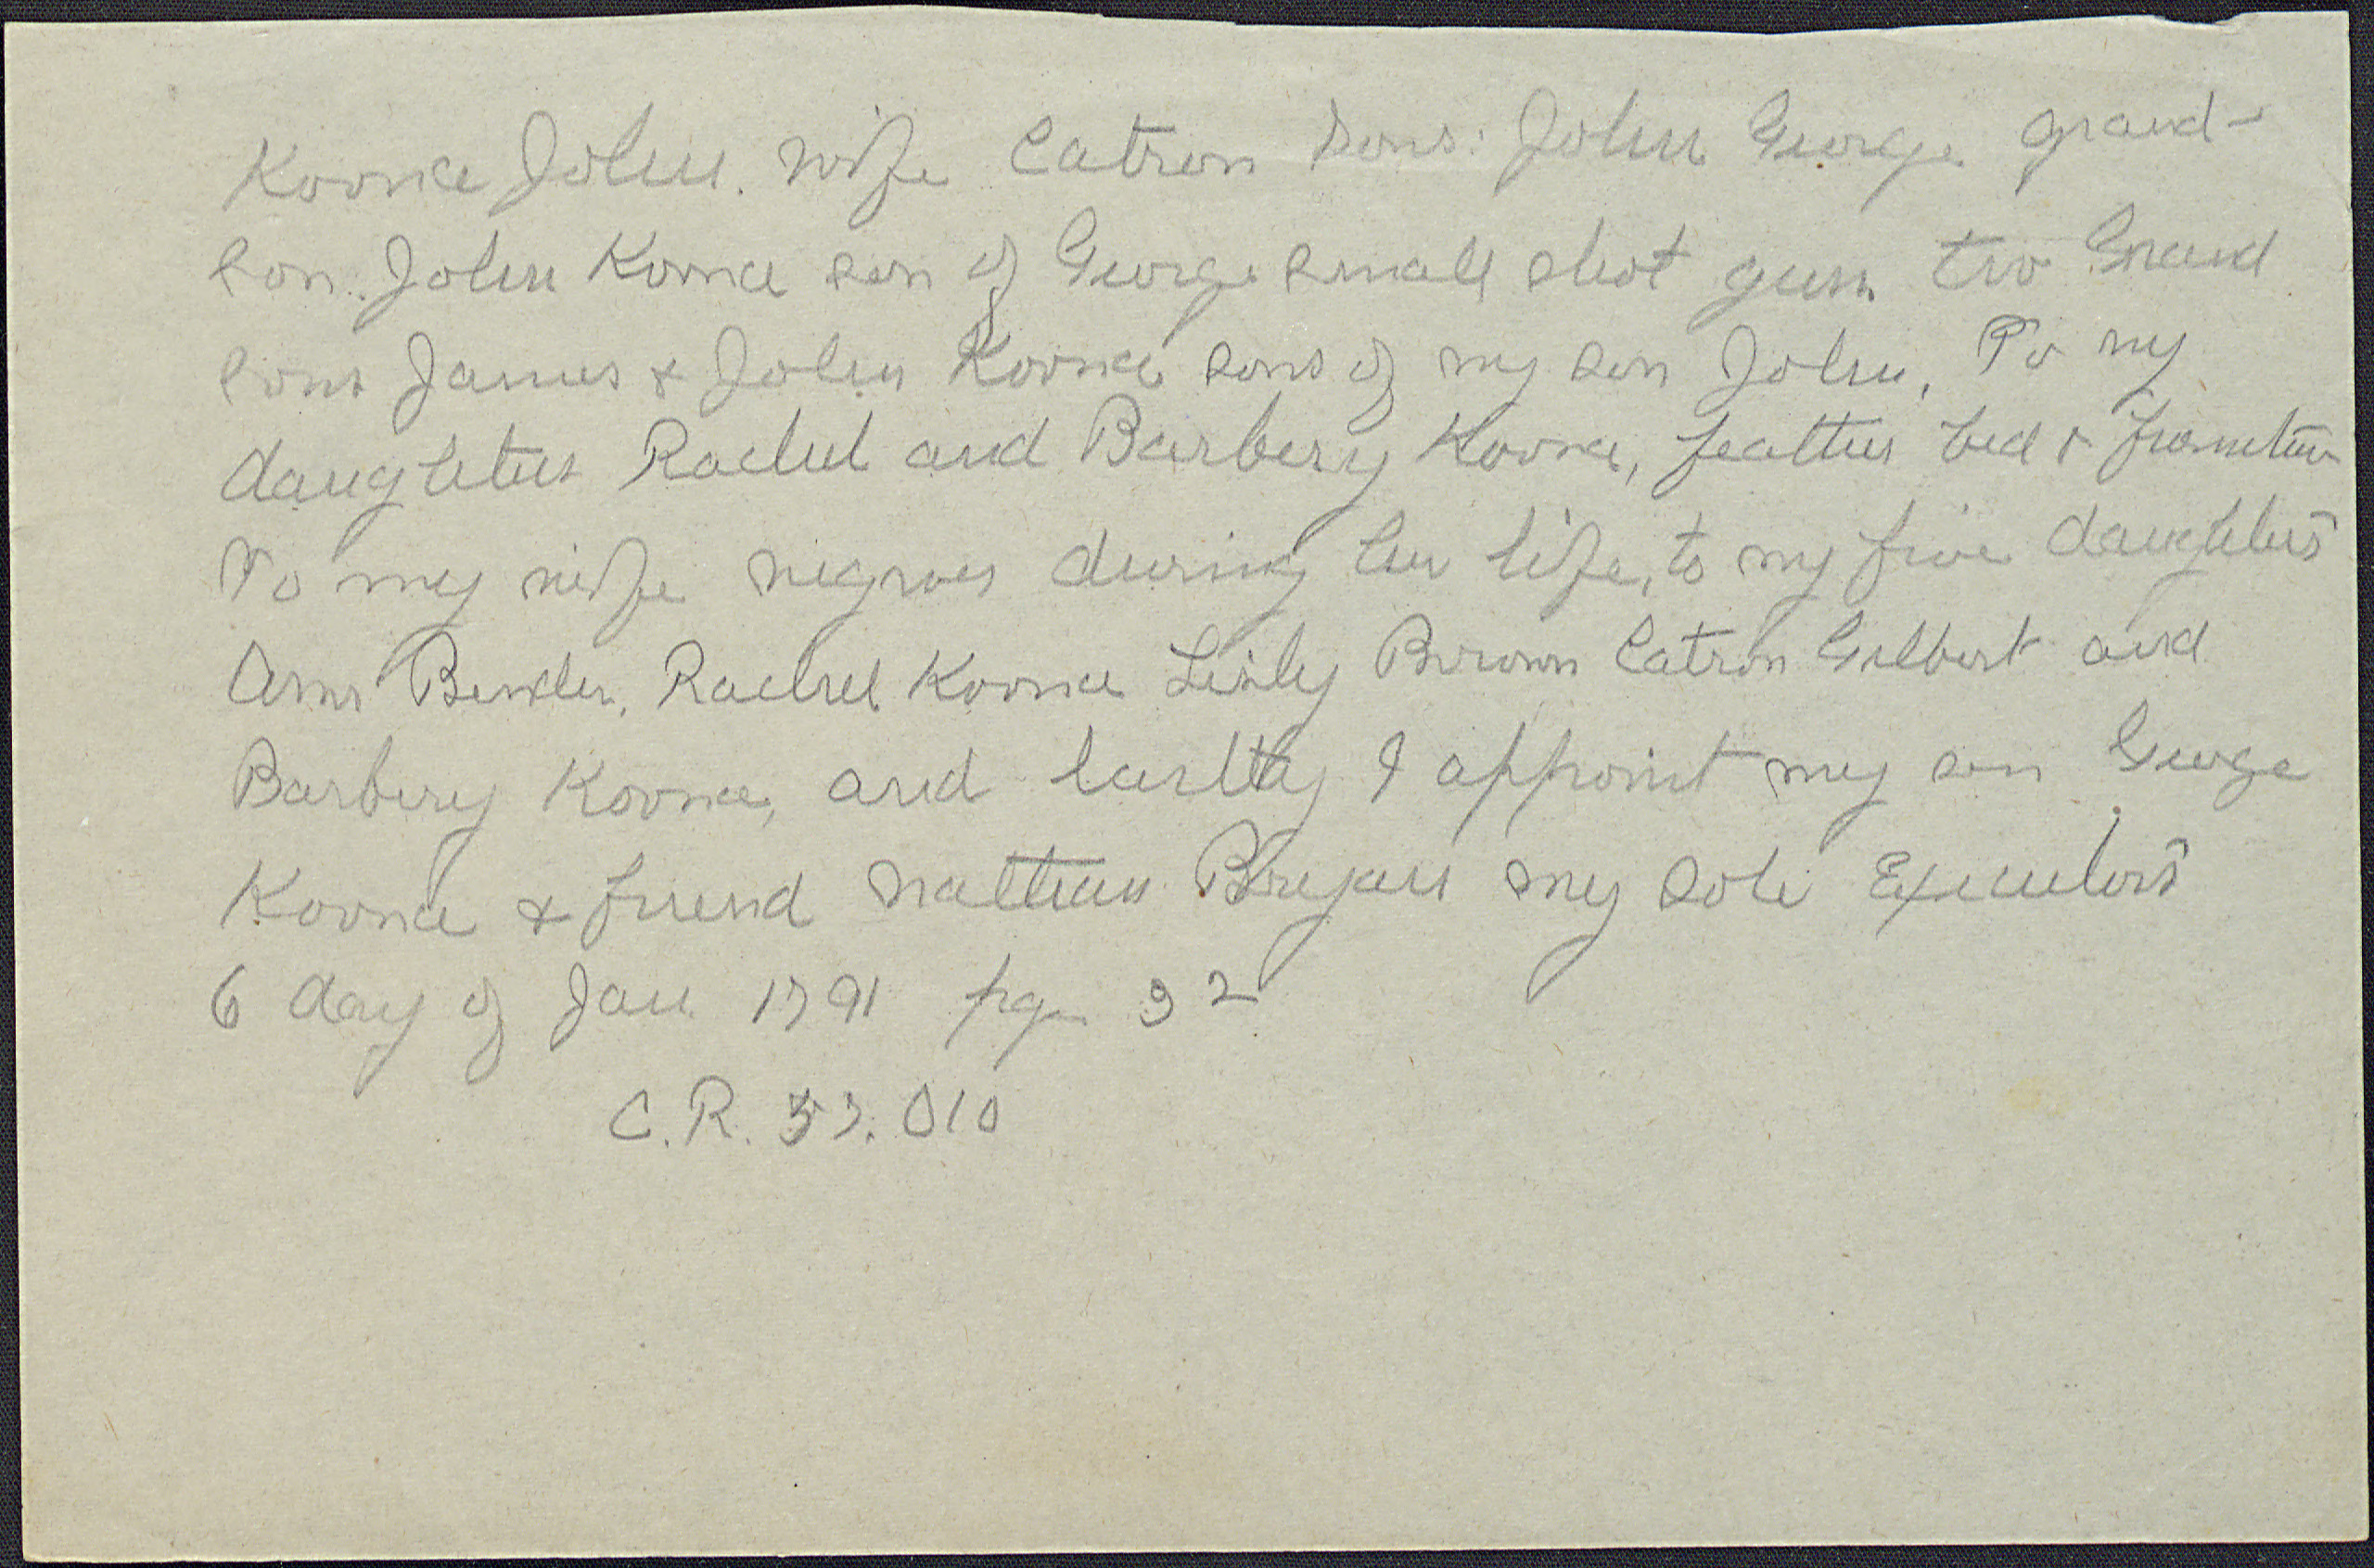 Koonce John. wife Catron Sons: John George grand-
son. John Koonce son of George small shot gun two Grand
sons James & John Koonce sons of my son John, To my
daughters Rachel and Barbery Koonce, feather bed & furniture
To my wife negroes during her life, to my five daughters
Ann Bender, Rachel Koonce Lesly Brown Catron Gilbert and
Barbery Koonce, and lastly I appoint my son George
Koonce & friend Nathan Bryan my sole Executors
6 day of Jan 1791 pg. 32
C.R. 57.010